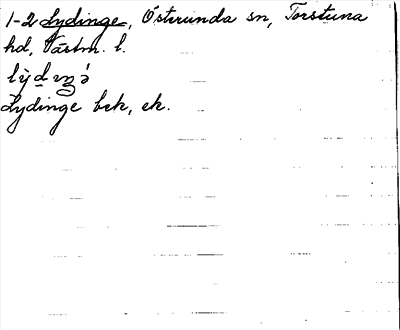 1-2 Lydinge, Österunda sn, Torstuna
hd, Västm. l.
Lydinge bek, ek.